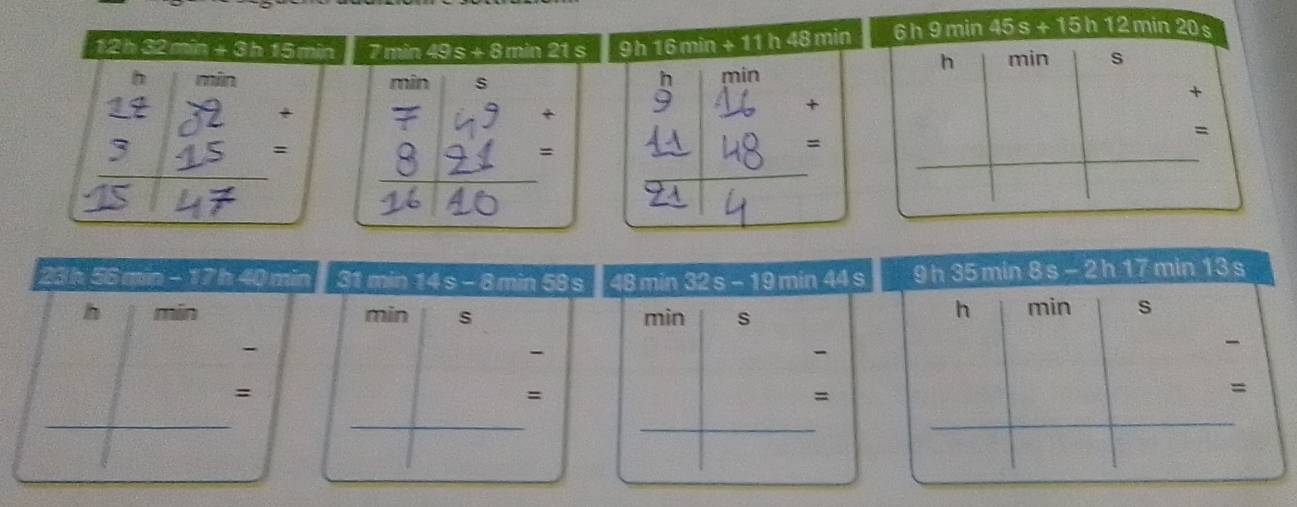 12 h 32 min + 3 h 15 min
h min
12 32 +
3 15 =
15 47
7 min 49 s + 8 min 21 s
min s
7 49 +
8 21 =
16 10
9 h 16 min + 11 h 48 min
h min
9 16 +
11 48 =
21 4
6 h 9 min 45 s + 15 h 12 min 20 s
h min s
+
=
23 h 56 min - 17 h 40 min
h min
-
=
31 min 14 s - 8 min 58 s
min s
-
=
48 min 32 s - 19 min 44 s
min s
-
=
9 h 35 min 8 s - 2 h 17 min 13 s
h min s
-
=